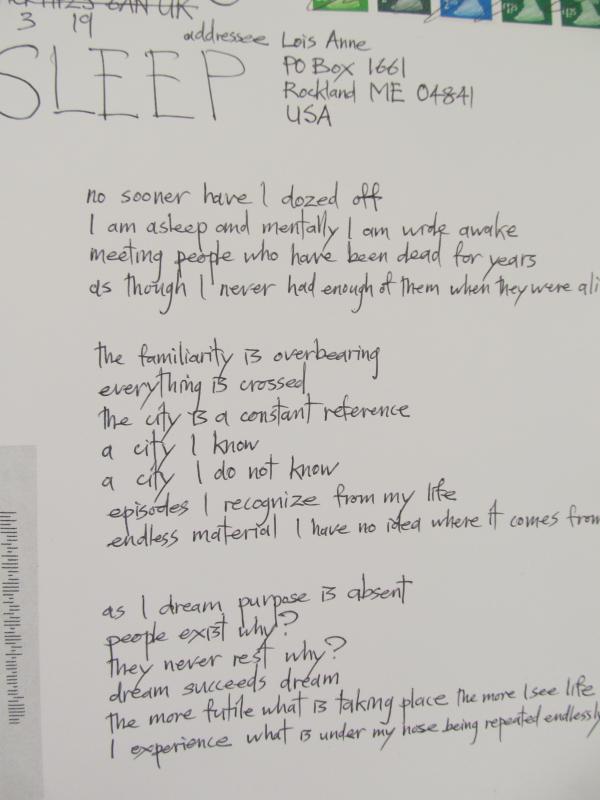 6AN UK
3 19
addressee Lois Anne
PO Box 1661
Rockland ME 04841
USA
SLEEP
no sooner have I dozed off
I am asleep and mentally I am wide awake
meeting people who have been dead for years
as though I never had enough of them when they were ali
the familiarity is overbearing
everything is crossed
the city is a constant reference
a city I know
a city I do not know
episodes I recognize from my life
endless material I have no idea where it comes from
as I dream purpose is absent
people exist why?
they never rest why?
dream succeeds dream
the more futile what is taking place the more I see life
I experience what is under my nose being repeated endlessly